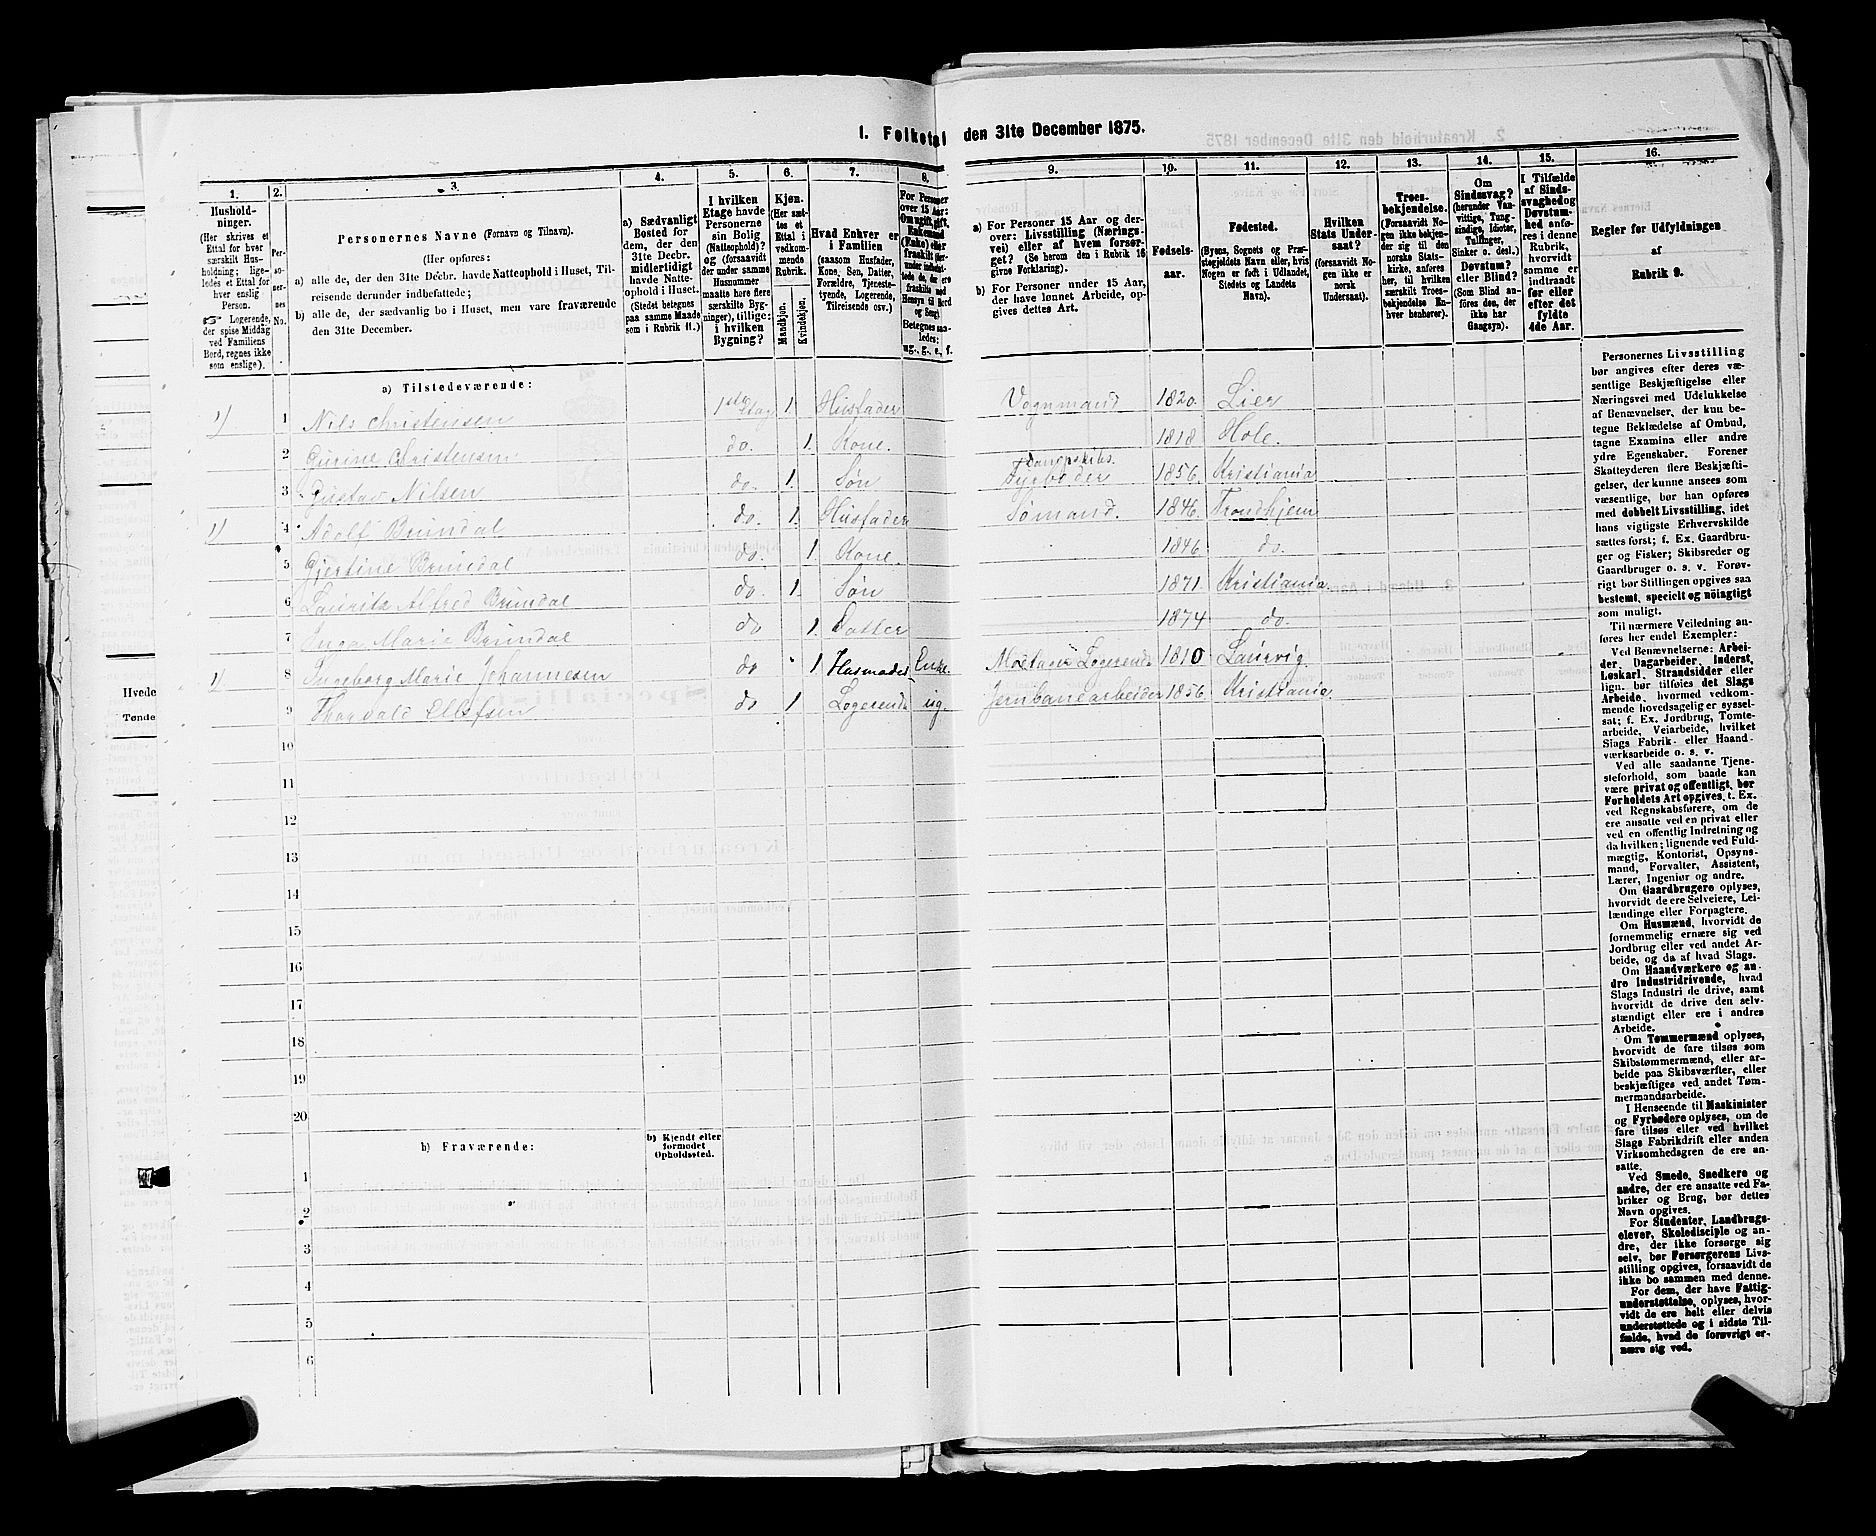 1. Folketal den 31te December 1875.
1.
Hushold-
ninger.
(Her skrives et
Ettal for hver
særskilt Hus-
holdning; lige-
ledes et Ettal for
hver enslig
Person.
Logerende,
der spise Middag
ved Familiens
Bord, regnes ikke
som enslige).
2.
Per-
so-
ner-
nes
No.
3.
Personernes Navne (Fornavn og Tilnavn).
(Her opføres:
a) alle de, der den 31te Decbr. havde Natteophold i Huset, Til-
reisende derunder indbefattede;
b) alle de, der sædvanlig bo i Huset, men vare fraværende
den 31te December.
4.
a) Sædvanligt
Bosted for
dem, der den
31te Decbr.
midlertidigt
havde Natte-
ophold i Huset.
(Stedet betegnes
paa samme Maade
som i Rubrik 11.)
5.
I hvilken
Etage havde
Personerne
sin Bolig
(Natteophold)?
og (forsaavidt
der under samme
Husnummer
maatte høre flere
særskilte Byg-
ninger), tillige:
i hvilken
Bygning?
6.
Kjøn.
(Her sæt-
tes et
Ettal i
vedkom-
mende
Rubrik.
Mandkjøn.
Kvindekjøn.
7.
Hvad Enhver er
i Familien
(saasom Husfader,
Kone, Søn, Datter,
Forældre, Tjeneste-
tyende, Logerende,
Tilreisende osv.)
8.
For Personer
over 15 Aar:
Betegnes saa-
ledes:
ug., g., e., f.
9.
a) For Personer 15 Aar og der-
over: Livsstilling (Nærings-
vei) eller af hvem forsør-
get? (Se herom den i Rubrik 16
givne Forklaring).
b) For Personer under 15 Aar,
der have lønnet Arbeide, op-
gives dettes Art.
10.
Fødsels-
aar.
11.
Fødested.
(Byens, Sognets og Præ-
stegjeldets Navn eller, hvis
Nogen er født i Udlandet,
Stedets og Landets
Navn).
12.
Hvilken
Stats Under-
saat?
(forsaavidt No-
gen ikke er
norsk
Undersaat).
13.
Troes-
bekjendelse.
(Forsaavidt No-
gen ikke bekjen-
der sig til den
norske Stats-
kirke, anføres
her, til hvilken
særskilt Troes-
bekjendelse En-
hver henhører).
14.
Om
Sindssvag?
(herunder Van-
vittige, Tung-
sindige, Idioter,
Tullinger,
Sinker o. desl.)
Døvstum?
eller Blind?
(Som Blind an-
føres den, der
ikke har
Gangsyn).
15.
I Tilfælde
af Sinds-
svaghed og
Døvstum-
hed anfø-
res i denne
Rubrik,
hvorvidt
samme er
indtraadt
før eller
efter det
fyldte
4de Aar.
16.
Regler for Udfyldningen
af
Rubrik 9.
a) Tilstedeværende:
1) 1 Nils Christensen 1ste Etag 1. Husfader Vognmand 1820. Lier
2 Gurine Christensen do. 1. Kone. 1818 Hole.
3 Gustav Nilsen do. 1. Søn Dampskibs. Fyrbøder 1856. Kristiania
1) 4 Adolf Brundal do. 1. Husfader Sømand. 1846. Trondhjem
5 Gjertine Brundal do. 1. Kone. 1846. do.
6 Lauritz Alfred Brundal do. 1. Søn 1871. Kristiania
7 Inga Marie Brundal do 1. Datter 1874 do.
1) 8 Ingeborg Marie Johannesen do 1 Husmoder Enke. Modtager Logerende 1810 Laurvig.
9 Thorvald Ellefsen do 1 Logerende ug. Jernbanearbeider 1856. Kristiania
10
11
12
13
14
15
16
17
18
19
20
b) Fraværende:
b) Kjendt eller
formodet
Opholdssted.
1
2
3
4
5
6
Personernes Livsstilling
bør angives efter deres væ-
sentlige Beskjæftigelse eller
Næringsvei med Udelukkelse
af Benævnelser, der kun be-
tegne Beklædelse af Ombud,
tagne Examina eller andre
ydre Egenskaber. Forener
Skatteyderen flere Beskjæfti-
gelser, der kunne ansees som
væsentlige, bør han opføres
med dobbelt Livsstilling, idet
hans vigtigste Erhvervskilde
sættes først; f. Ex. Gaardbru-
ger og Fisker; Skibsreder og
Gaardbruger o. s. v. Forøv-
rigt bør Stillingen opgives saa
bestemt, specielt og nöiagtigt
som muligt.
Til nærmere Veiledning an-
føres her endel Exempler:
Ved Benævnelserne: Arbei-
der, Dagarbeider, Inderst,
Løskarl, Strandsidder eller
lign. bør tilføies det Slags
Arbeide, hvormed vedkom-
mende hovedsagelig er syssel-
sat; f. Ex. Jordbrug, Tomte-
arbeide, Veiarbeide, hvilket
Slags Fabrik- eller Haand-
værksarbeide o. s. v.
Ved alle saadanne Tjene-
steforhold, som baade kan
være privat og offentligt, bør
Forholdets Art opgives, t. Ex.
ved Regnskabsførere, om de
ere ansatte ved en privat eller
ved en offentlig Indretning og
da hvilken; lignende ved Fuld-
mægtig, Kontorist, Opsyns-
mand, Forvalter, Assistent,
Lærer, Ingeniør og andre.
Om Gaardbrugere oplyses,
hvorvidt de ere Selveiere, Lei-
lændinge eller Forpagtere.
Om Husmænd, hvorvidt de
fornemmelig ernære sig ved
Jordbrug eller ved andet Ar-
beide, og da af hvad Slags.
Om Haandværkere og an-
dre Industridrivende, hvad
Slags Industri de drive, samt
hvorvidt de drive den selv-
stændigt eller ere i andres
Arbeide.
Om Tømmermænd oplyses,
hvorvidt de fare tilsøs som
Skibstømmermænd, eller ar-
beide paa Skibsværfter, eller
beskjæftiges ved andet Tøm-
mermandsarbeide.
I Henseende til Maskinister
og Fyrbødere oplyses, om de
fare tilsøs eller ved hvilket
Slags Fabrikdrift eller anden
Virksomhedsgren de ere an-
satte.
Ved Smede, Snedkere og
andre, der ere ansatte ved Fa-
briker og Brug, bør dettes
Navn opgives.
For Studenter, Landbrugs-
elever, Skoledisciple og an-
dre, der ikke forsørge sig
selv, bør Forsørgerens Livs-
stilling opgives, forsaavidt de
ikke bo sammen med denne.
For dem, der have Fattig-
understøttelse, oplyses, hvor-
vidt de ere helt eller delvis
understøttede og i sidste Til-
fælde, hvad de forøvrigt er-
nære sig ved.
Hvede
Tønde